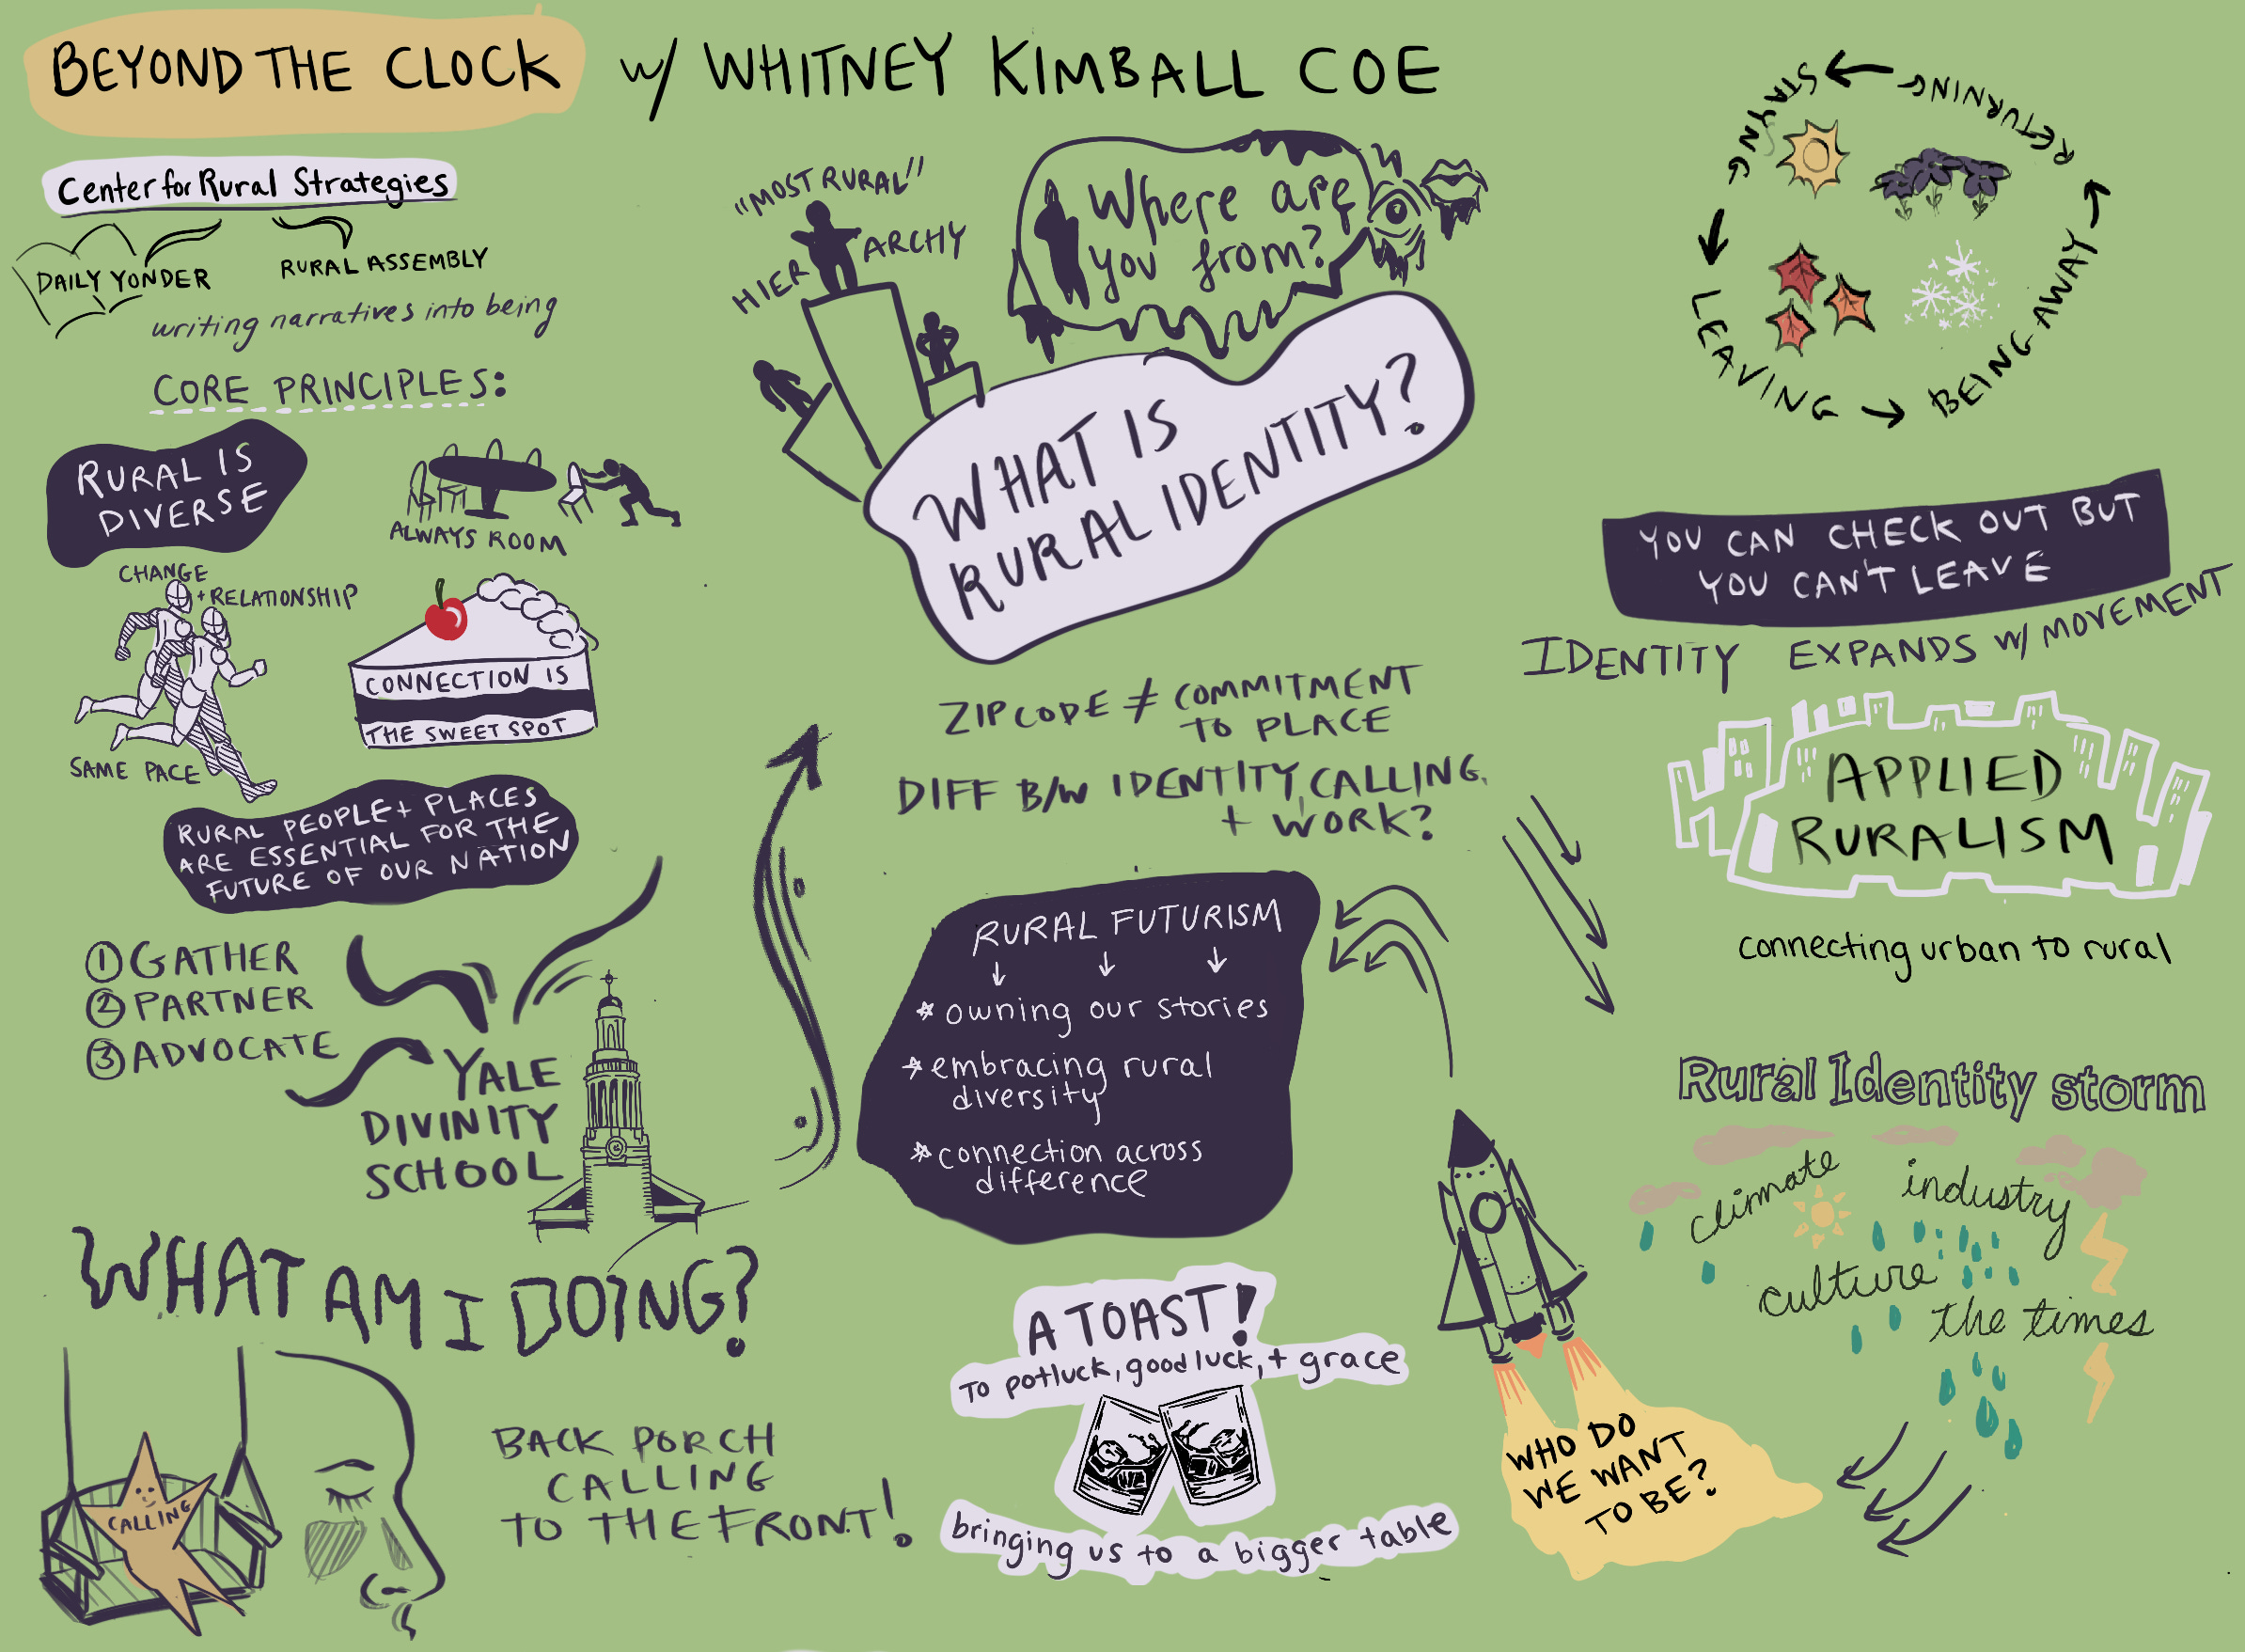 BEYOND THE CLOCK
w/ WHITNEY KIMBALL COE
Center for Rural Strategies
DAILY YONDER
RURAL ASSEMBLY
writing narratives into being
CORE PRINCIPLES:
RURAL IS
DIVERSE
ALWAYS ROOM
CHANGE
+ RELATIONSHIP
SAME PACE
CONNECTION IS
THE SWEET SPOT
RURAL PEOPLE + PLACES
ARE ESSENTIAL FOR THE
FUTURE OF OUR NATION
① GATHER
② PARTNER
③ ADVOCATE
YALE
DIVINITY
SCHOOL
WHAT AM I DOING?
CALLING
BACK PORCH
CALLING
TO THE FRONT!
"MOST RURAL"
HIER ARCHY
Where are
you from?
WHAT IS
RURAL IDENTITY?
ZIPCODE ≠ COMMITMENT
TO PLACE
DIFF B/W IDENTITY, CALLING,
+ WORK?
RURAL FUTURISM
* owning our stories
* embracing rural
diversity
* connection across
difference
A TOAST!
TO potluck, good luck, + grace
bringing us to a bigger table
STAYNG
RETURNING
LEAVING
BEING AWAY
YOU CAN CHECK OUT BUT
YOU CAN'T LEAVE
IDENTITY EXPANDS w/ MOVEMENT
APPLIED
RURALISM
connecting urban to rural
Rural Identity storm
climate
industry
culture
the times
WHO DO
WE WANT
TO BE?